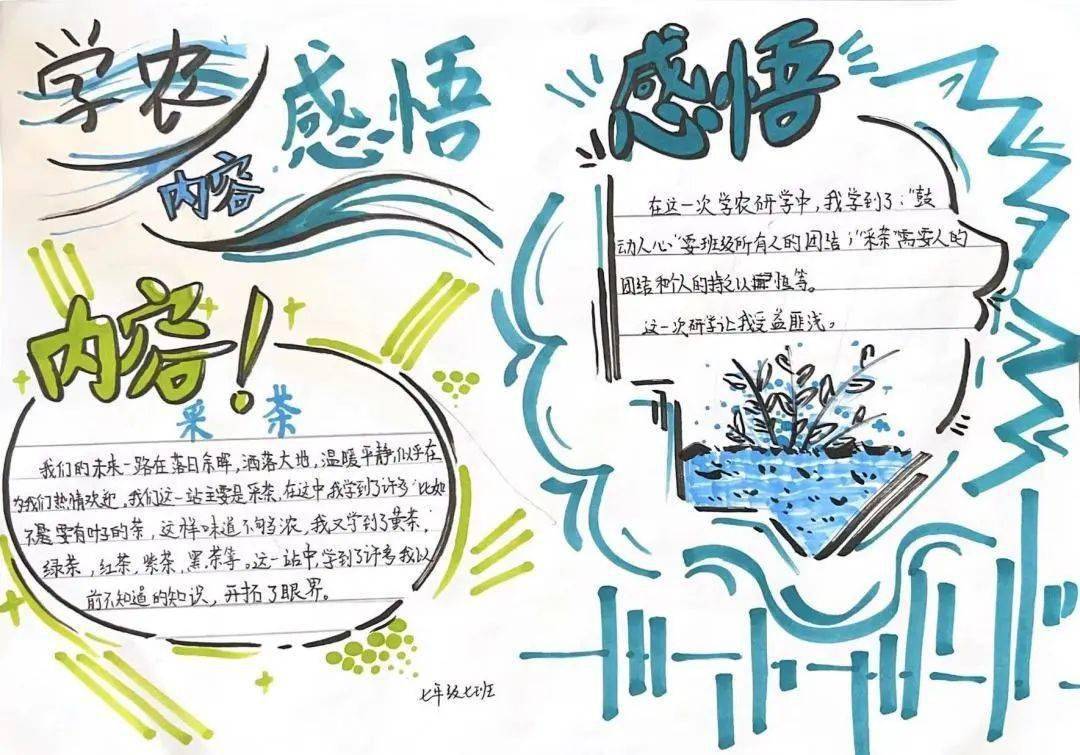 学农
内容
感悟
内容！
采茶
我们的未来一路在落日余晖，洒落大地，温暖平静似乎在
为我们热情欢迎，我们这一站主要是采茶，在这中我学到了许多：比如
要有叶子的茶，这样味道不够浓，我又学到了黄茶；
绿茶，红茶，紫茶，黑茶等。这一站中，学到了许多我以
前不知道的知识，开拓了眼界。
七年级七班
感悟
在这一次学农研学中，我学到了："鼓
动人心"要班级所有人的团结；"采茶"需要人的
团结和个人的持之以恒等。
这一次研学让我受益匪浅。